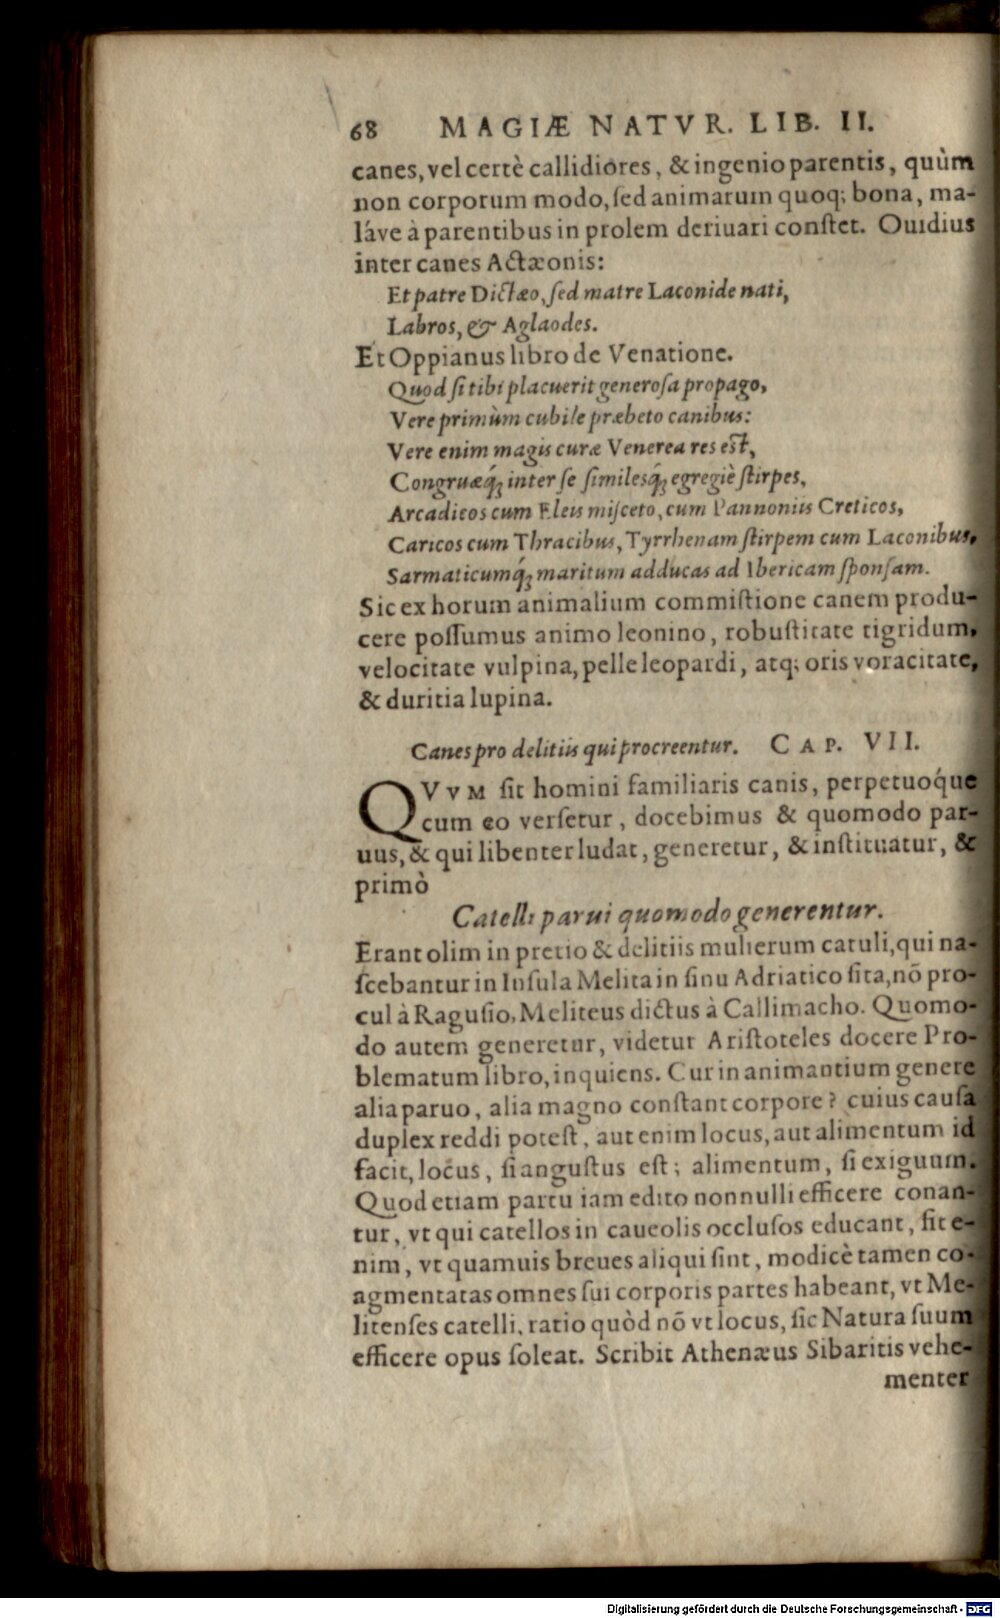 68 MAGIÆ NATVR. LIB. II.
canes, vel certè callidiores, & ingenio parentis, quùm
non corporum modo, ſed animarum quoq; bona, ma-
láve à parentibus in prolem deriuari conſtet. Ouidius
inter canes Actæonis:
Et patre Dictæo, ſed matre Laconide nati,
Labros, & Aglaodes.
Et Oppianus libro de Venatione.
Quod ſi tibi placuerit generoſa propago,
Vere primùm cubile præbeto canibus:
Vere enim magis curæ Venerea res eſt,
Congruæq́; inter ſe ſimilesq́; egregiè ſtirpes,
Arcadicos cum Eleis miſceto, cum Pannoniis Creticos,
Caricos cum Thracibus, Tyrrhenam ſtirpem cum Laconibus,
Sarmaticumq́; maritum adducas ad Ibericam ſponſam.
Sic ex horum animalium commiſtione canem produ-
cere poſſumus animo leonino, robuſticate tigridum,
velocitate vulpina, pelle leopardi, atq; oris voracitate,
& duritia lupina.
Canes pro delitiis qui procreentur. CAP. VII.
QVVM ſit homini familiaris canis, perpetuoq́ue
cum eo verſetur, docebimus & quomodo par-
uus, & qui libenter ludat, generetur, & inſtituatur, &
primò
Catelli parui quomodo generentur.
Erant olim in pretio & delitiis mulierum catuli, qui na-
ſcebantur in Inſula Melita in ſinu Adriatico ſita, nõ pro-
cul à Raguſio, Meliteus dictus à Callimacho. Quomo-
do autem generetur, videtur Ariſtoteles docere Pro-
blematum libro, inquiens. Cur in animantium genere
alia paruo, alia magno conſtant corpore? cuius cauſa
duplex reddi poteſt, aut enim locus, aut alimentum id
facit, locus, ſi anguſtus eſt; alimentum, ſi exiguum.
Quod etiam partu iam edito nonnulli efficere conan-
tur, vt qui catellos in caueolis occluſos educant, ſit e-
nim, vt quamuis breues aliqui ſint, modicè tamen co-
agmentatas omnes ſui corporis partes habeant, vt Me-
litenſes catelli, ratio quòd nõ vt locus, ſic Natura ſuum
efficere opus ſoleat. Scribit Athenæus Sibaritis vehe-
menter
Digitalisierung gefördert durch die Deutsche Forschungsgemeinschaft - DFG